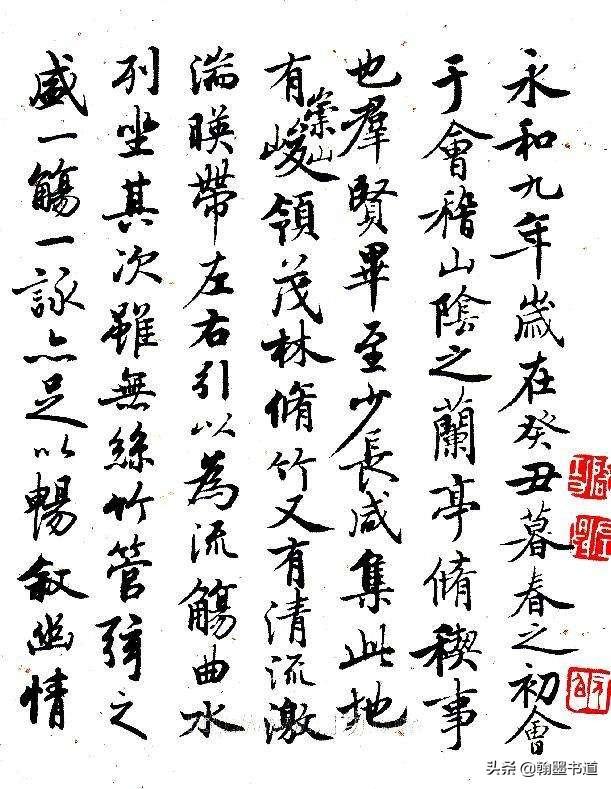 永和九年歲在癸丑暮春之初會
于會稽山陰之蘭亭脩稧事
也羣賢畢至少長咸集此地
有崇山峻領茂林脩竹又有清流激
湍暎帶左右引以為流觴曲水
列坐其次雖無絲竹管弦之
盛一觴一詠亦足以暢敘幽情
头条 @翰墨书道